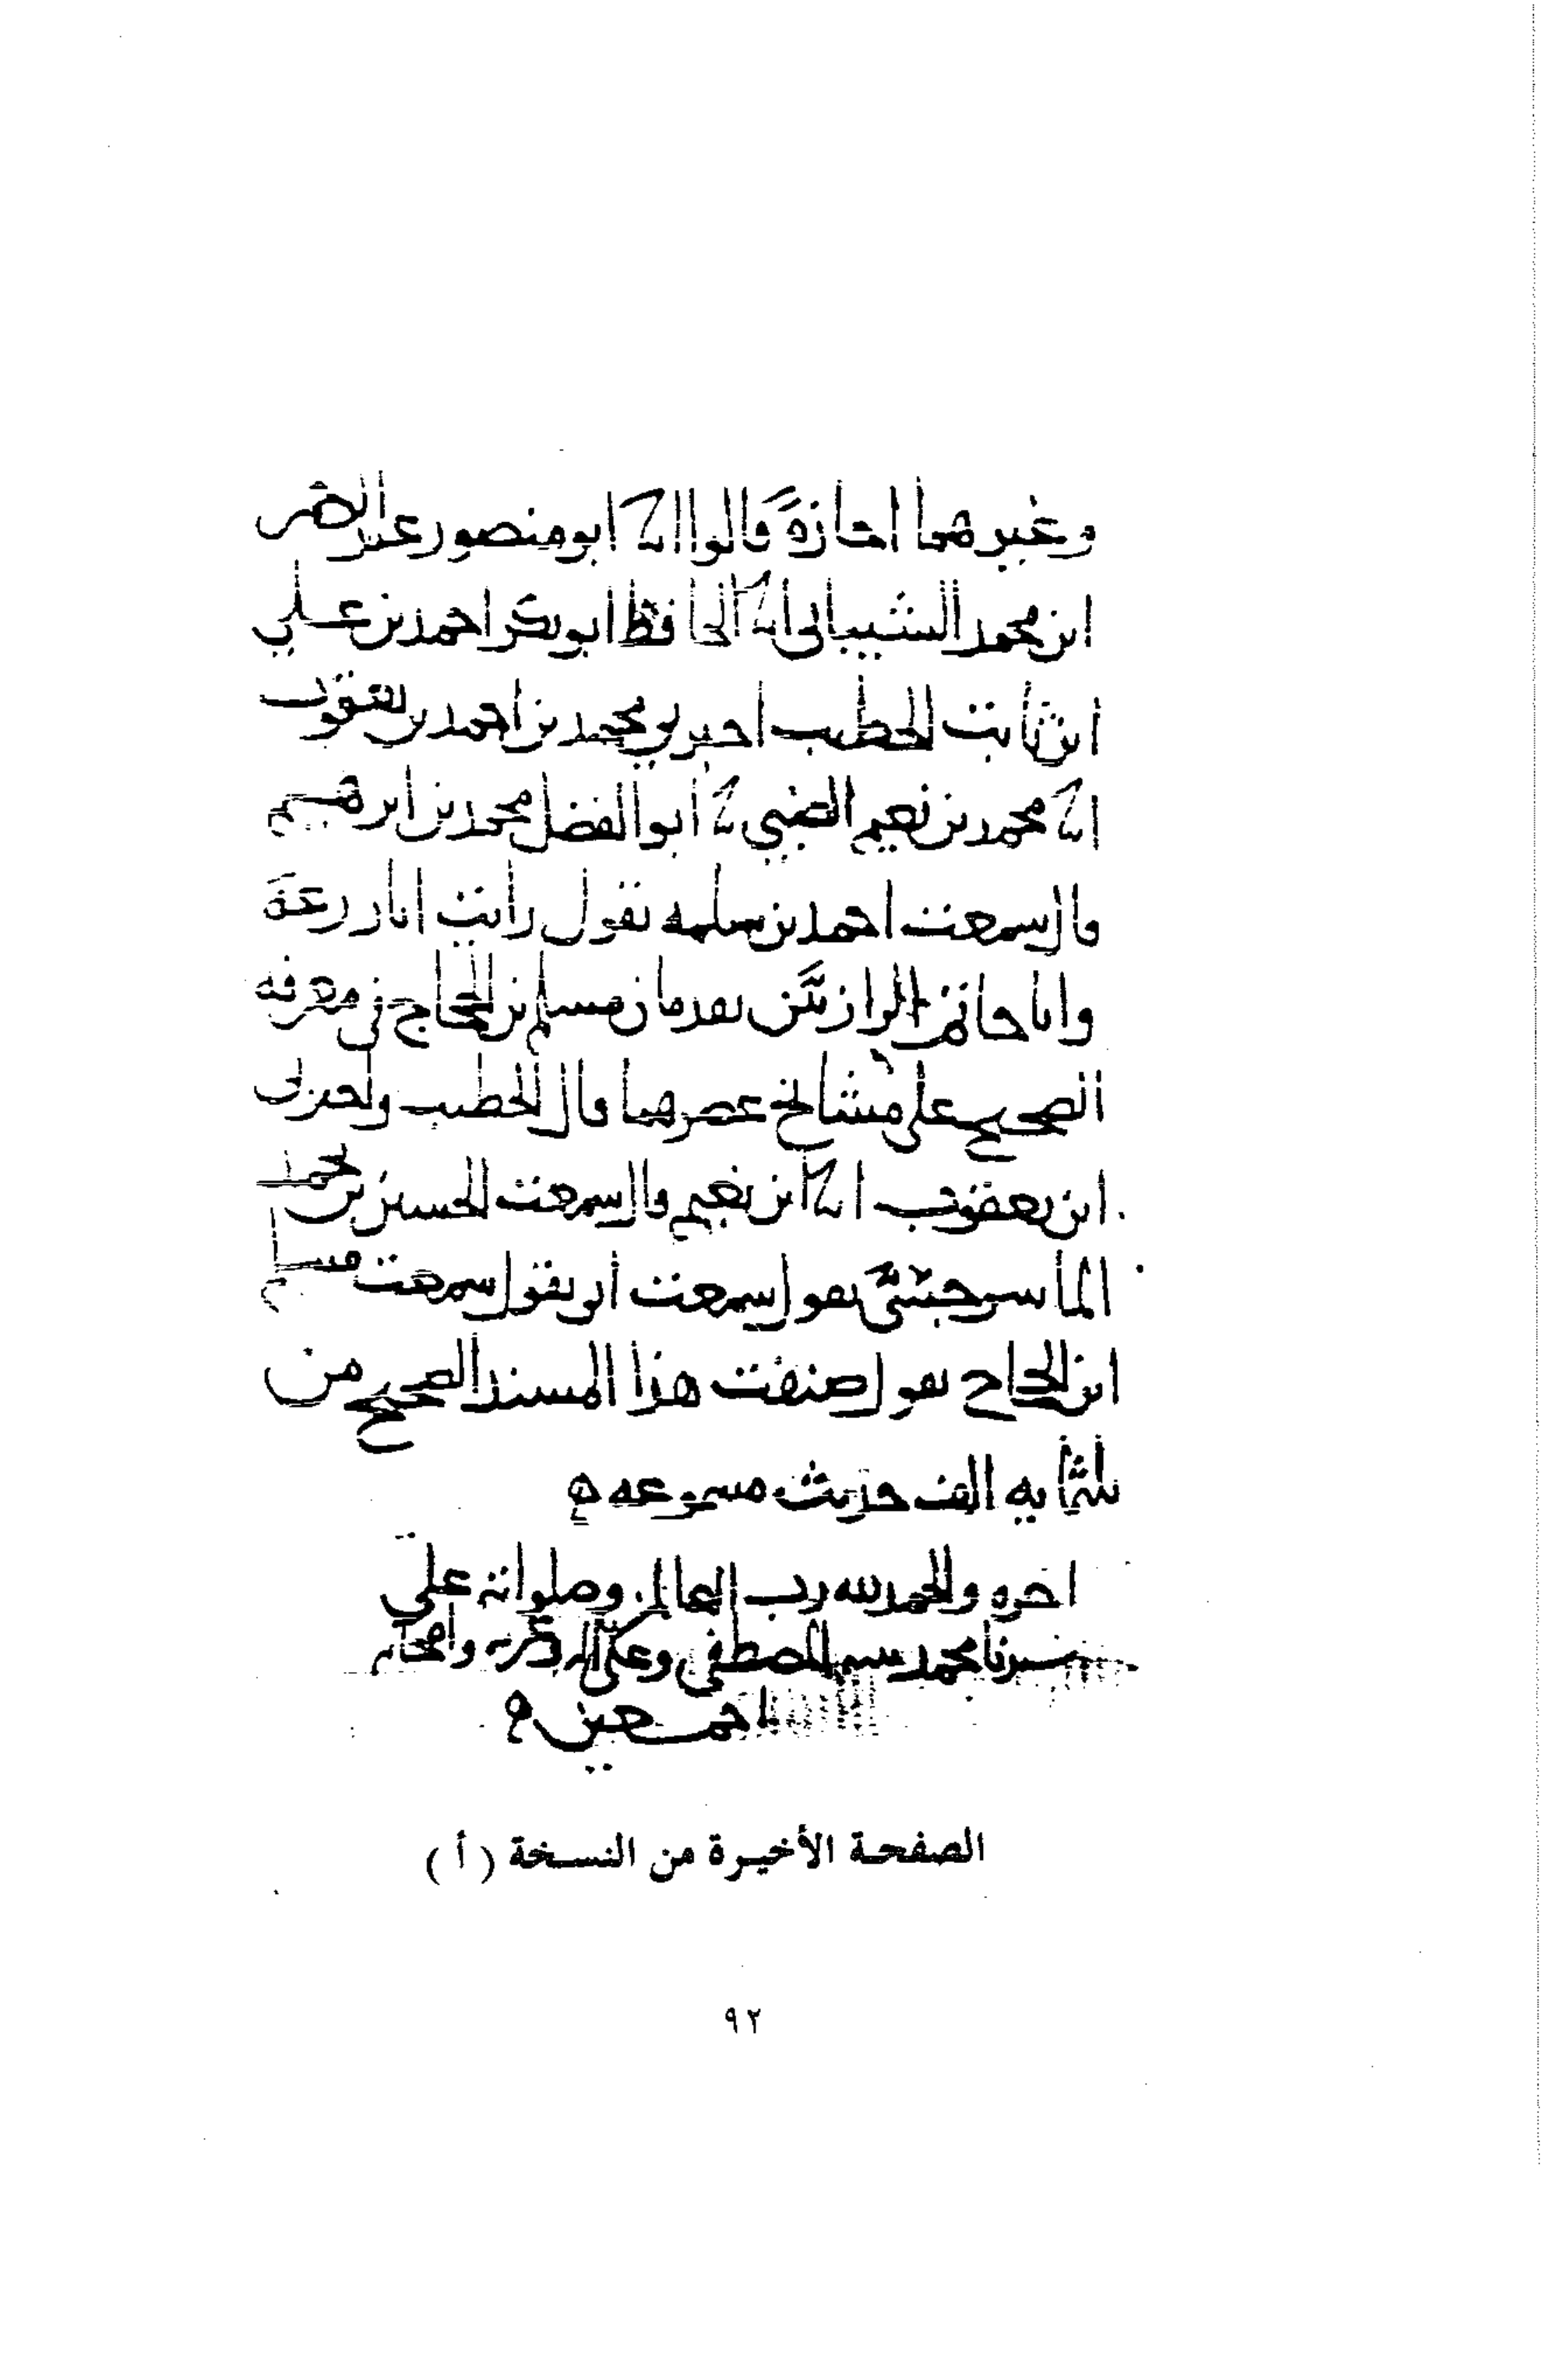 وغيرهما اجازةً قالوا انا ابو منصور عبد الرحمن
ابن محمد الشيباني انا الحافظ ابو بكر احمد بن علي
ابن ثابت الخطيب اخبرني محمد بن احمد بن يعقوب
انا محمد بن نعيم الضبي نا ابو الفضل محمد بن ابرهيم
قال سمعت احمد بن سلمه يقول رايت ابا زرعة
وابا حاتم الرازيَّين يقدمان مسلم بن الحجاج في معرفه
الصحيح على مشايخ عصرهما قال الخطيب واخبرني
ابن يعقوب انا ابن نعيم قال سمعت الحسين بن محمد
الماسرجسيّ يقول سمعت ابي يقول سمعت مسلم
ابن الحجاج يقول صنفت هذا المسند الصحيح من
ثلثمايه الف حديث مسموعه ه
اخره والحمد لله رب العالمين وصلواته على
سيدنا محمد نبيه المصطفى وعلى اله وصحابه
اجمعين ه
الصفحة الأخيرة من النسخة ( أ )
٩٢